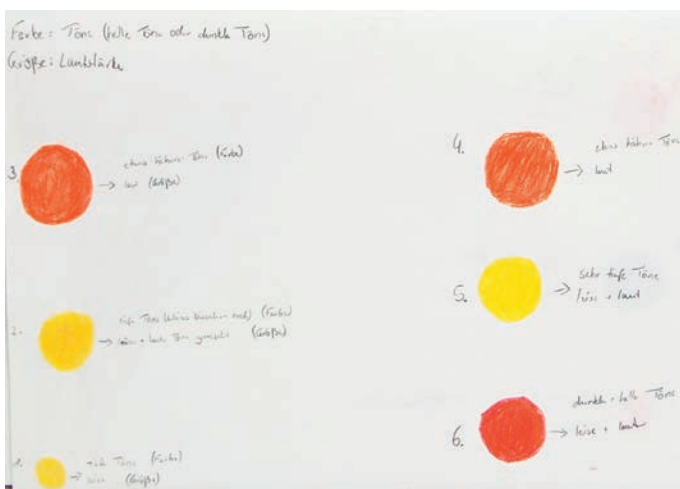 Farbe: Töne (helle Töne oder dunkle Töne)
Größe: Lautstärke
3.
etwas höhere Töne (Farbe)
→ laut (Größe)
2.
tiefe Töne (Farbe)
→ leise + laute Töne gemischt (Größe)
1.
Töne (Farbe)
→ leise (Größe)
4.
etwas höhere Töne
→ laut
5.
→ sehr tiefe Töne
leise + laut
6.
dunkle + helle Töne
→ leise + laut